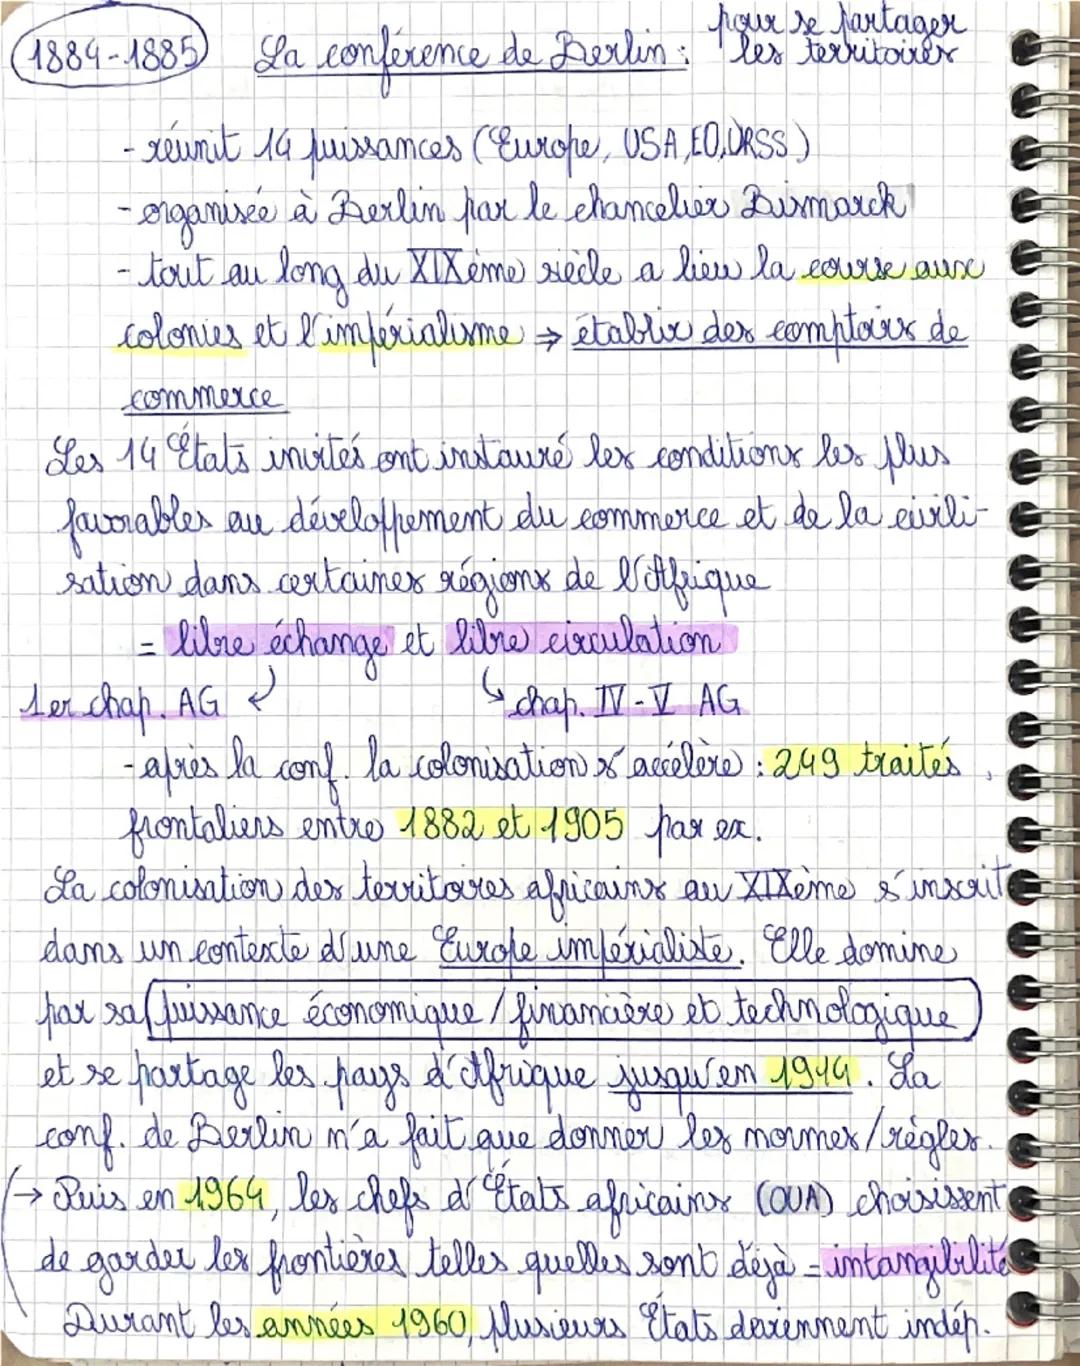 1884-1885 La conférence de Berlin : pour se partager
les territoires
- réunit 14 puissances (Europe, USA, EO, URSS)
- organisée à Berlin par le chancelier Bismarck
- tout au long du XIXème siècle a lieu la course aux
colonies et l'impérialisme ⇒ établir des comptoirs de
commerce
Les 14 États invités ont instauré les conditions les plus
favorables au développement du commerce et de la civili-
sation dans certaines régions de l'Afrique
= libre échange et libre circulation
1er chap. AG ↙ ↳ chap. IV - V AG
- après la conf. la colonisation s'accélère : 249 traités
frontaliers entre 1882 et 1905 par ex.
La colonisation des territoires africains au XIXème s'inscrit
dans un contexte d'une Europe impérialiste. Elle domine
par sa puissance économique / financière et technologique
et se partage les pays d'Afrique jusqu'en 1914. La
conf. de Berlin n'a fait que donner les normes/règles.
→ Puis en 1964, les chefs d'États africains (OUA) choisissent
de garder les frontières telles quelles sont déjà = intangibilité
Durant les années 1960, plusieurs États deviennent indép.